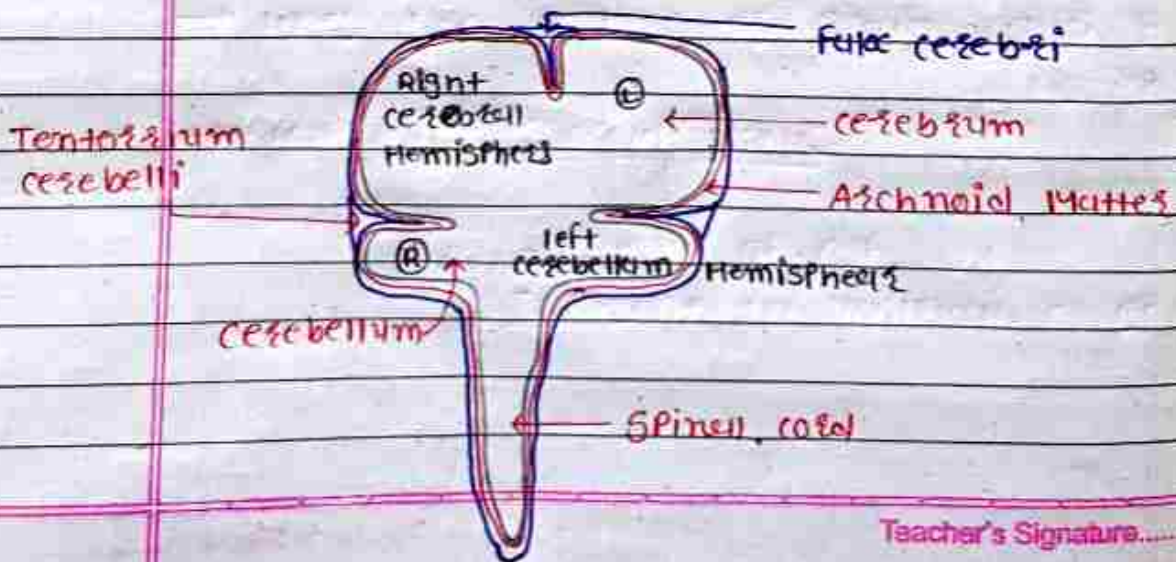 Falx cerebri
Right
cerebrell
Hemisphers
L
cerebrum
Tentorrium
cerebelli
Arch noid Matter
left
cerebellum Hemisphear
R
cerebellum
Spinell. cord
Teacher's Signature.....